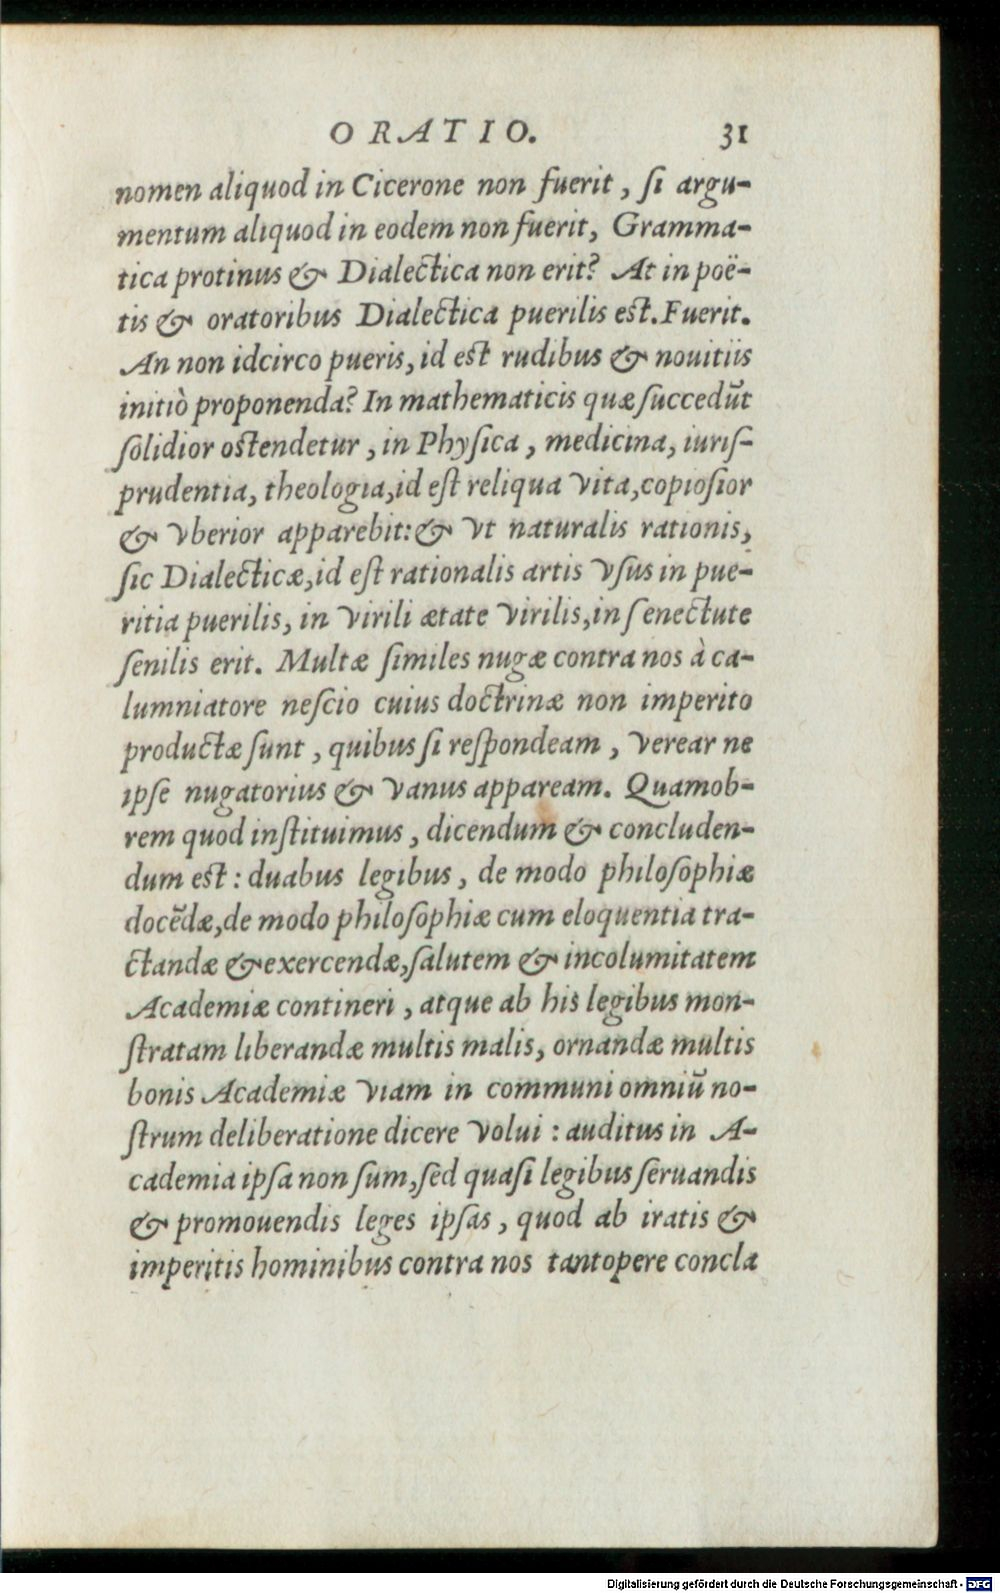 ORATIO. 31
nomen aliquod in Cicerone non fuerit, ſi argu-
mentum aliquod in eodem non fuerit, Gramma-
tica protinus & Dialectica non erit? At in poë-
tis & oratoribus Dialectica puerilis est. Fuerit.
An non idcirco pueris, id est rudibus & nouitiis
initiò proponenda? In mathematicis quæ ſuccedūt
ſolidior ostendetur, in Phyſica, medicina, iuriſ-
prudentia, theologia, id eſt reliqua vita, copioſior
& vberior apparebit: & vt naturalis rationis,
ſic Dialecticæ, id eſt rationalis artis vſus in pue-
ritia puerilis, in virili ætate virilis, in ſenectute
ſenilis erit. Multæ ſimiles nugæ contra nos à ca-
lumniatore neſcio cuius doctrinæ non imperito
productæ ſunt, quibus ſi reſpondeam, verear ne
ipſe nugatorius & vanus appaream. Quamob-
rem quod inſtituimus, dicendum & concluden-
dum est: duabus legibus, de modo philoſophiæ
docēdæ, de modo philoſophiæ cum eloquentia tra-
ctandæ & exercendæ, ſalutem & incolumitatem
Academiæ contineri, atque ab his legibus mon-
ſtratam liberandæ multis malis, ornandæ multis
bonis Academiæ viam in communi omniū no-
ſtrum deliberatione dicere volui: auditus in A-
cademia ipſa non ſum, ſed quaſi legibus ſeruandis
& promouendis leges ipſas, quod ab iratis &
imperitis hominibus contra nos tantopere concla
Digitalisierung gefördert durch die Deutsche Forschungsgemeinschaft - DFG